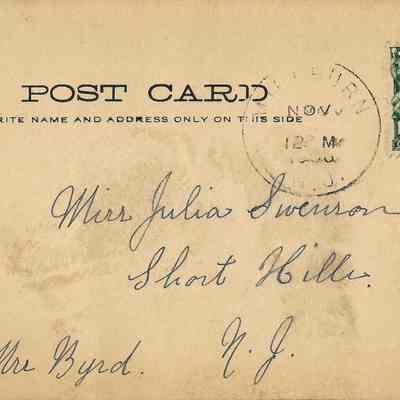 POST CARD
RITE NAME AND ADDRESS ONLY ON THIS SIDE
BURN
NOV
12 M
N.J.
Miss Julia Swenson
Short Hills.
Mrs Byrd. N. J.